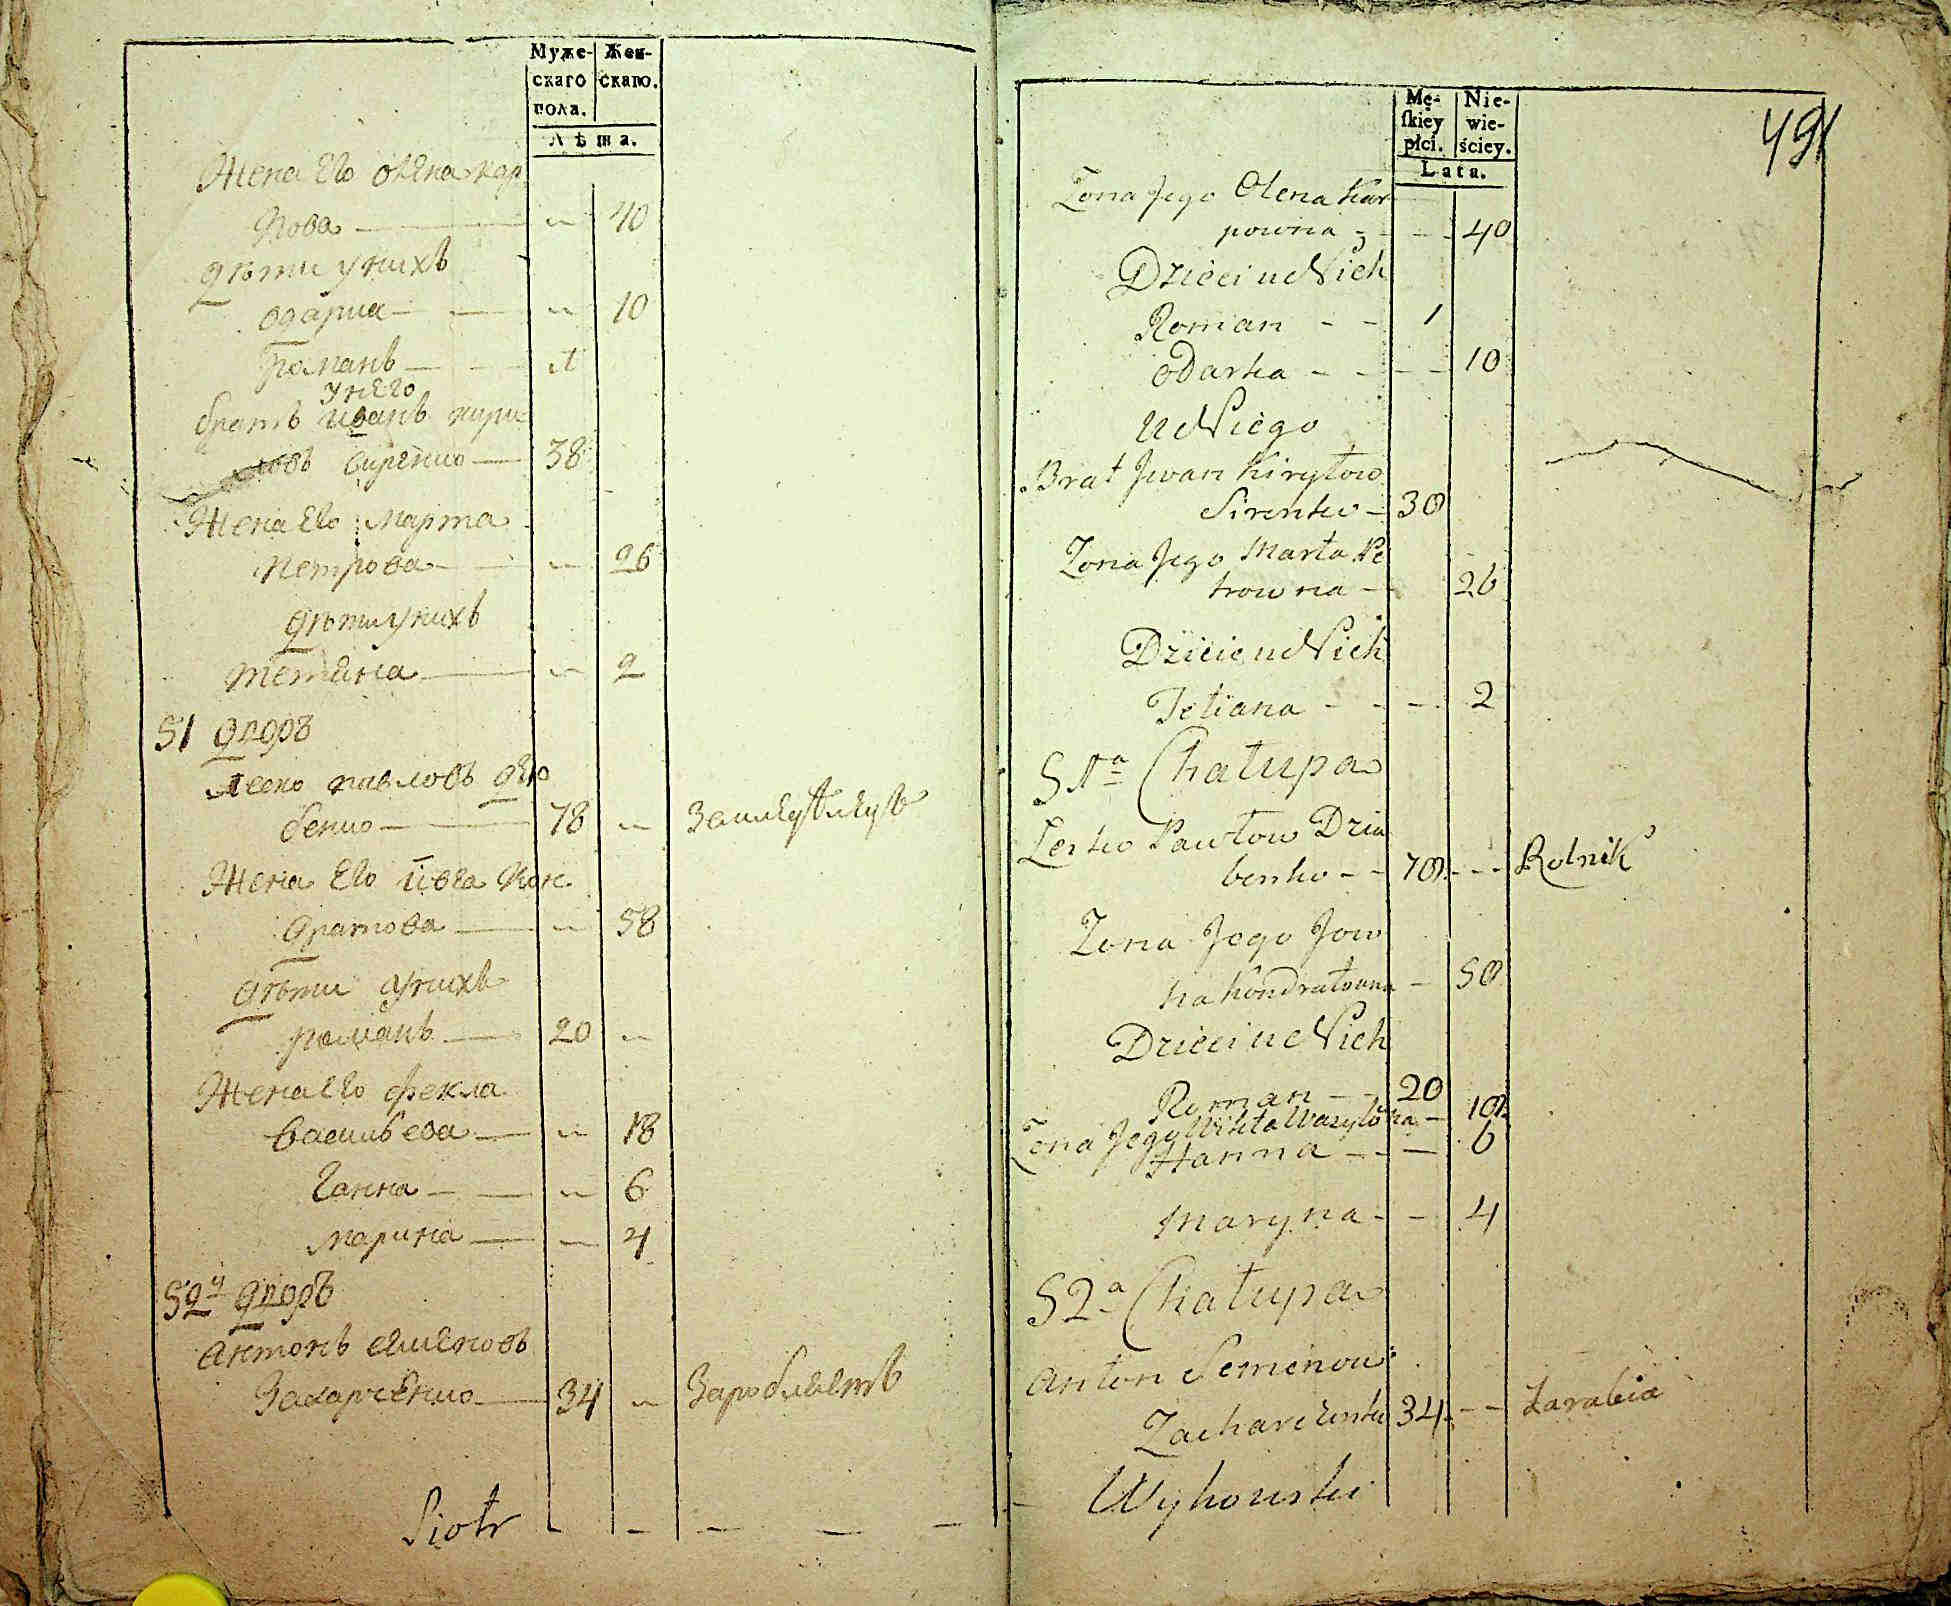 Муже-
скаго
пола.
Жен-
скаго.
Лѣта.
Жена Его олена кар
пова — " 40
дѣти унихъ
одарка — " 10
романъ — 1
унего
братъ иванъ кири
ловъ сиренко — 38
Жена Его марта
петрова — " 26
дѣти унихъ
тетяна — " 2
51 дворъ
леско павловъ дзю
бенко — 78 "
Жена Его Ївга кон
дратова — " 58
дѣти унихъ
романъ — 20 "
Жена Его фекла
васильева — " 18
Ганна — " 6
марина — " 4
52й дворъ
антонъ семеновъ
Захарченко — 34 " Заробляетъ
Piotr - - - - -
Mę-
ſkiey
płci.
Nie-
wie-
ściey.
Lata.
491
Zona Jego Olena Kar
powna - - - 40
Dzieci u Nich
Roman - - 1
Odarka - - - - 10
U Niego
Brat Jwan Kiryłow
Sirenko - 38
Zona Jego Marta Pe
trowna - 26
Dzieci u Nich
Tetiana - - - - 2
51a Chałupa
Lesko Pawłow Dziu
benko - - 78 - - - Rolnik
Zona Jego Jow
ha Kondratowna - 58
Dzieci u Nich
Roman - - 20
Zona Jego Wikta Wasylowna - 18
Hanna - - - 6
Maryna - - 4
52a Chałupa
Anton Semenow
Zacharczenko 34 - - Zarabia
Wyhowski